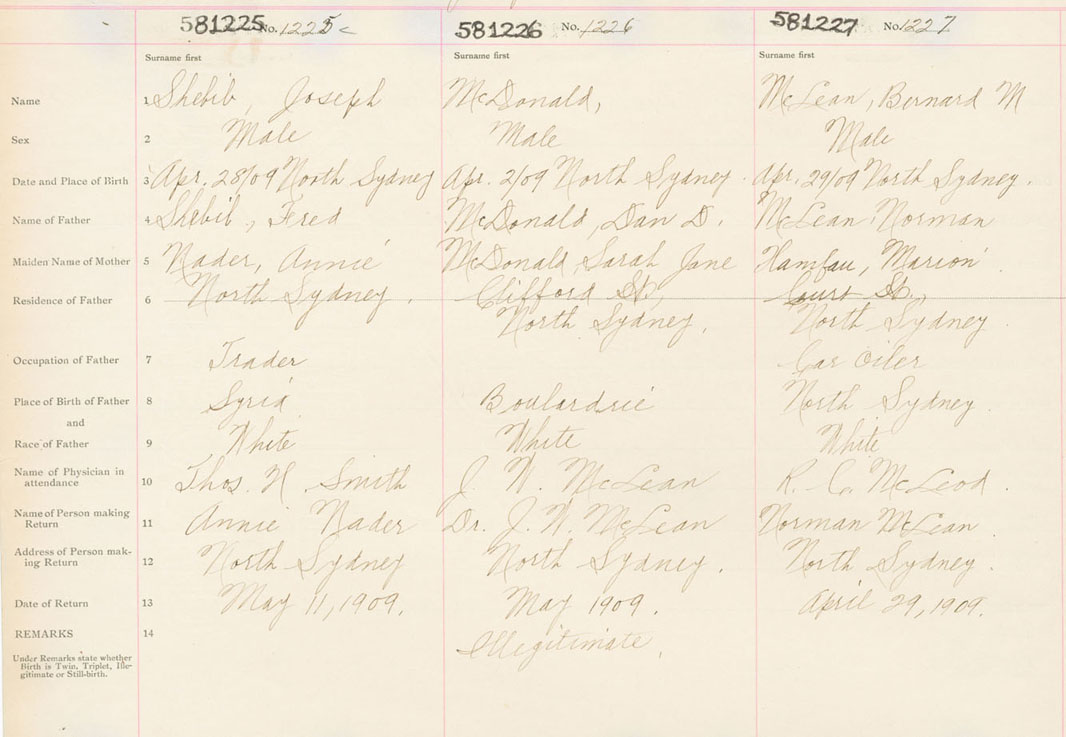 581225 No. 1225c 581226 No. 1226 581227 No. 1227
Surname first Surname first Surname first
Name 1 Shebib, Joseph McDonald, McLean, Bernard M
Sex 2 Male Male Male
Date and Place of Birth 3 Apr. 28/09 North Sydney Apr. 2/09 North Sydney. Apr. 29/09 North Sydney.
Name of Father 4 Shebib, Fred McDonald, Dan D. McLean Norman
Maiden Name of Mother 5 Nader, Annie McDonald, Sarah Jane Marion
Residence of Father 6 North Sydney. Clifford St., St.,
North Sydney. North Sydney
Occupation of Father 7 Trader Car Oiler
Place of Birth of Father 8 Syria Boulardrie North Sydney.
and
Race of Father 9 White White White
Name of Physician in
attendance 10 Thos. H. Smith J. W. McLean R. C. McLeod.
Name of Person making
Return 11 Annie Nader Dr. J. W. McLean Norman McLean.
Address of Person mak-
ing Return 12 North Sydney North Sydney. North Sydney.
Date of Return 13 May 11, 1909. May 1909. April 29, 1909.
REMARKS 14 Illegitimate.
Under Remarks state whether
Birth is Twin, Triplet, Ille-
gitimate or Still-birth.